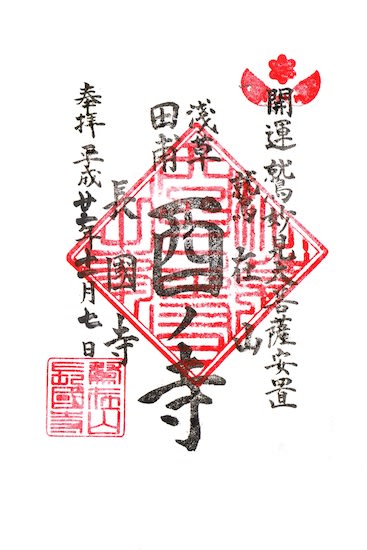 開運鷲妙見大菩薩安置
浅草
田甫
鷲在山
酉ノ寺
長國寺
奉拝 平成廿二年十一月七日
鷲在山
長國寺